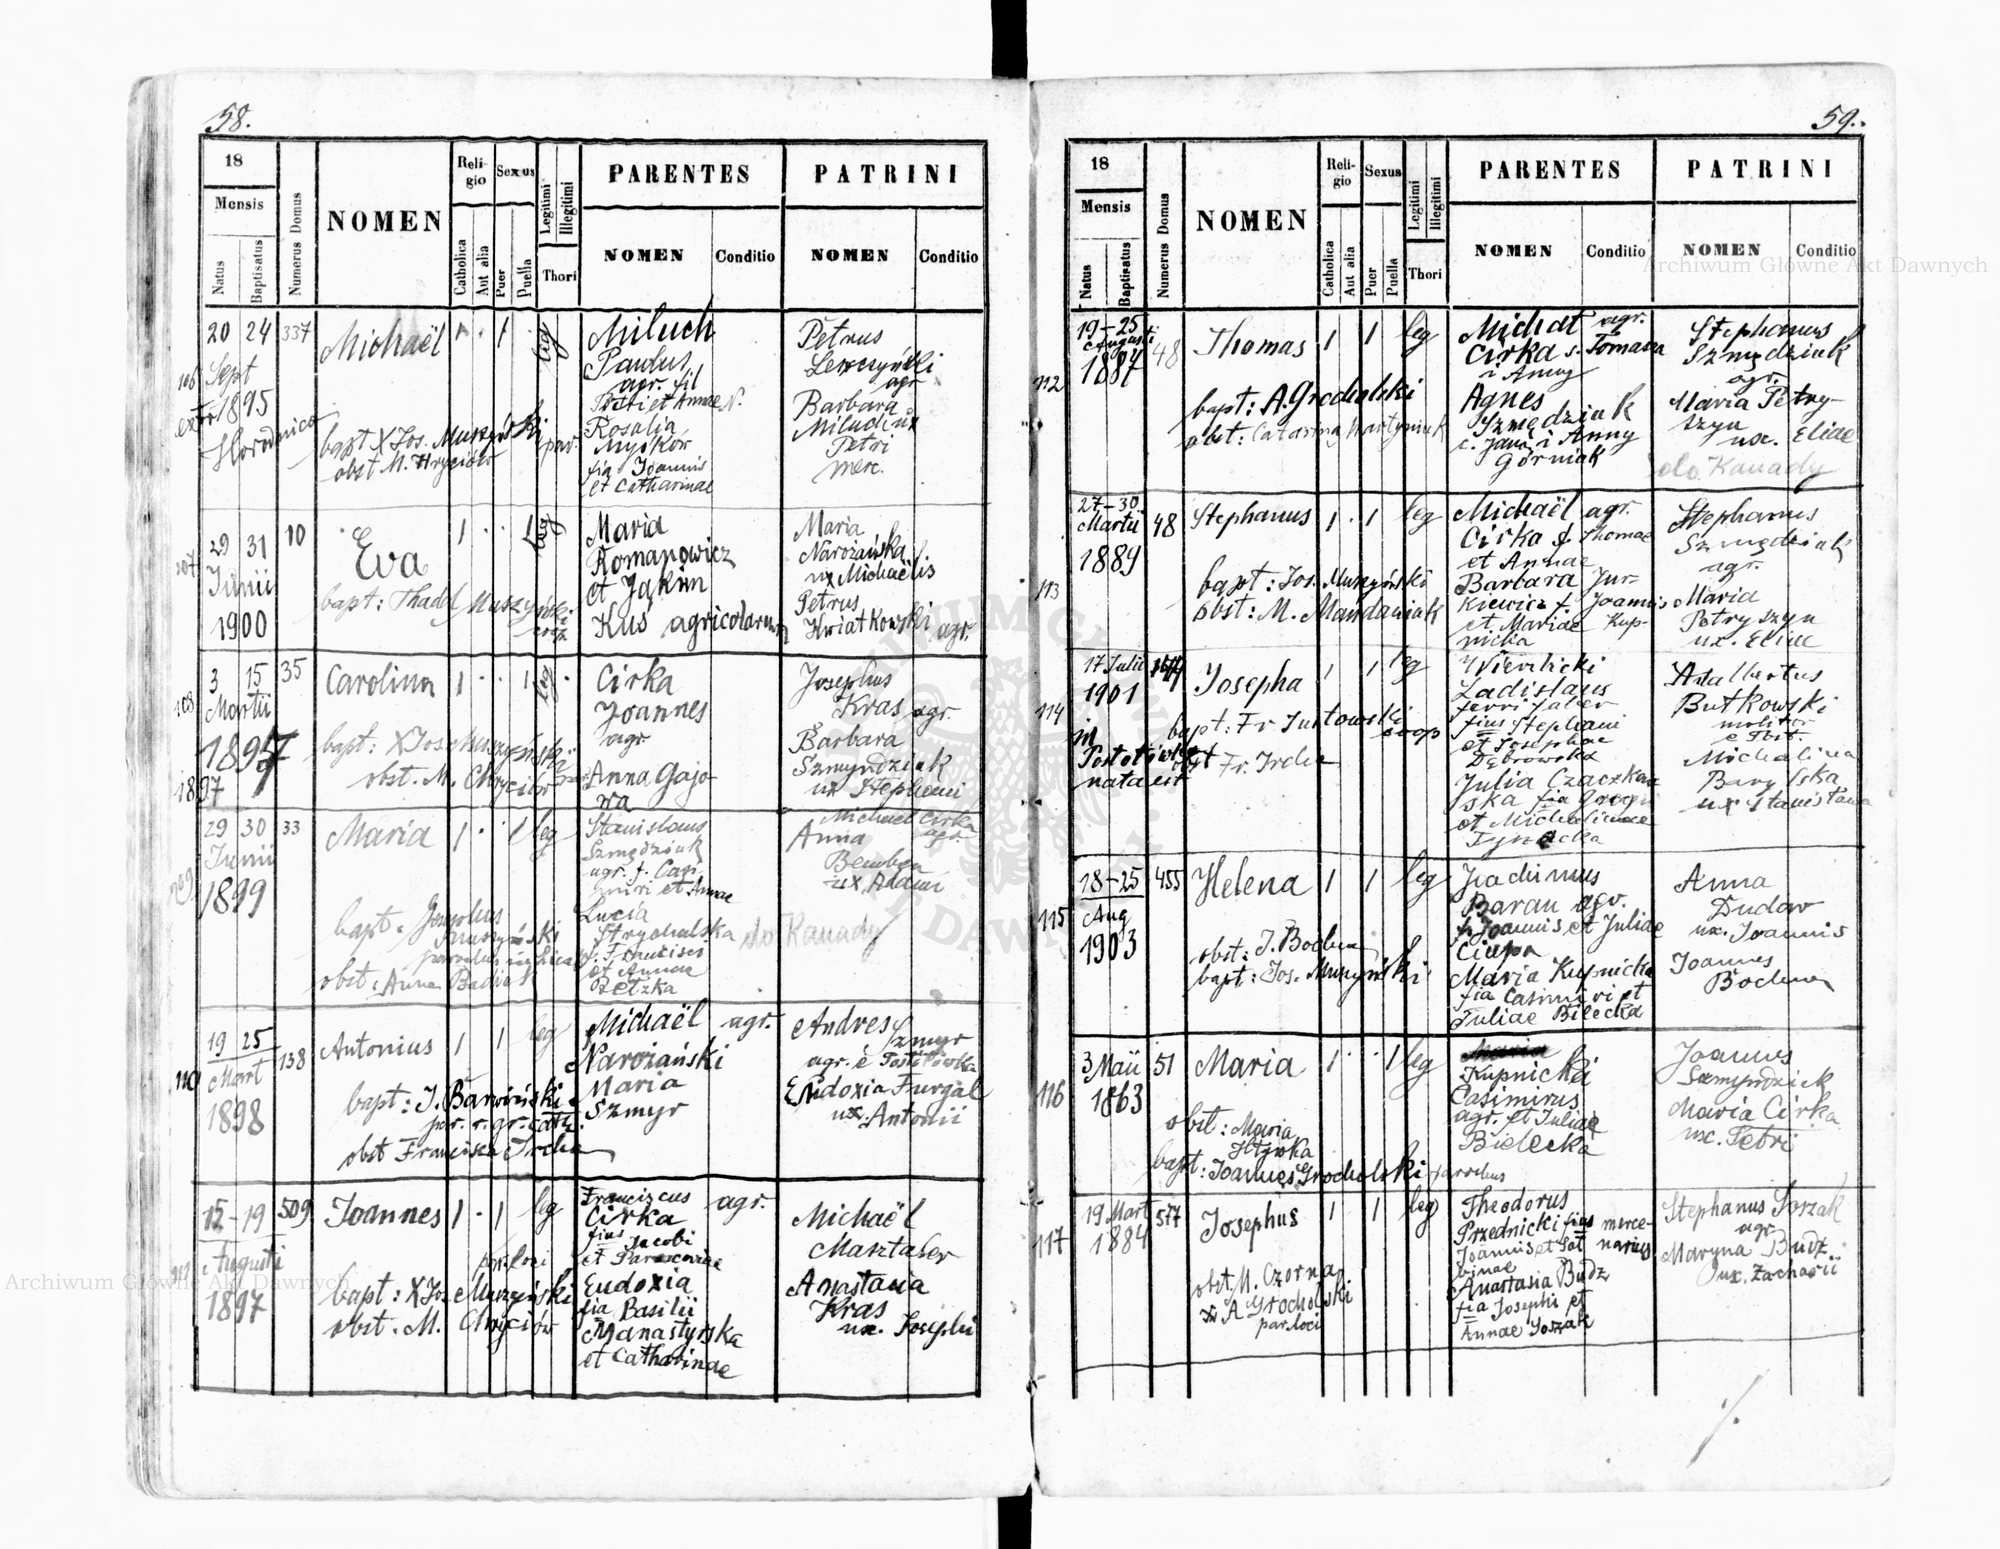 58.
18
Mensis
Natus
Baptisatus
Numerus Domus
NOMEN
Reli-
gio
Catholica
Aut alia
Sexus
Puer
Puella
Legitimi
Illegitimi
Thori
PARENTES
NOMEN
Conditio
PATRINI
NOMEN
Conditio
106
20 24 337
Sept
1895
Michaël 1 · 1 leg
bapt X Jos. Muszyński par.
obst M. Hryciów
Miluch
Paulus
agr. fil
Petri et Annae N.
Rosalia
Myskór
fia Joannis
et Catharinae
Petrus
Leszczyński
agr
Barbara
Miluch ux
Petri
merc.
107
29 31 10
Junii
1900
Eva 1 · · 1 leg
bapt: Thadd Muszyński
coop.
Maria
Romanowicz
et Jakim
Kuś agricolarum
Maria
Narożańska
ux Michaëlis
Petrus
Kwiatkowski agr.
108
3 15 35
Martii
1897
1897
Carolina 1 · · 1 leg
bapt: X Jos Muszyński
obst. M. Chryciów
Cirka
Joannes
agr.
Anna Gajo-
wa
Josephus
Kras agr.
Barbara
Szmyndziuk
ux Stephani
109
29 30 33
Junii
1899
Maria 1 · · 1 leg
bapt. Josephus
Muszyński
obst: Anna Badiak
Stanislaus
Szmędziuk
agr. f. Casi-
miri et Annae
Lucia
Strychalska
f. Francisci
et Annae
Retzka
Michael Cirka
agr.
Anna
Bemben
ux Adami
do Kanady
110
19 25 138
Mart
1898
Antonius 1 1 leg
bapt: J. Barwiński
par. r. gr. cath.
obst Franciska Ircha
Michaël agr.
Narożański
Maria
Szmyr
Andres Szmyr
agr. è Postołówka
Eudoxia Furgal
ux. Antonii
15-19 509
Augusti
1897
Joannes 1 · 1 leg
par. loci
bapt: X Jos Muszyński
obst. M. Chryciów
Franciscus agr.
Cirka
fius Jacobi
et Parascaviae
Eudoxia
fia Basilii
Manastyrska
et Catharinae
Michaël
Masztaler
Anastasia
Kras
ux. Josephi
59.
18
Mensis
Natus
Baptisatus
Numerus Domus
NOMEN
Reli-
gio
Catholica
Aut alia
Sexus
Puer
Puella
Legitimi
Illegitimi
Thori
PARENTES
NOMEN
Conditio
PATRINI
NOMEN
Conditio
112
19-25
Augusti
1887
48
Thomas 1 1 leg
bapt: A. Grocholski
obst: Catarina Martyniuk
Michał agr.
Cirka s. Tomasza
i Anny
Agnes
Szmędziuk
c. Jana i Anny
Górniak
Stephanus
Szmędziuk
agr.
Maria Petry-
szyn
ux. Eliae
do Kanady
113
27-30
Martii
1889
48
Stephanus 1 · 1 leg
bapt: Jos. Muszyński
obst: M. Mandaniak
Michaël agr.
Cirka f. Thomae
et Annae
Barbara Jur-
kiewicz f. Joannis
et Mariae Kup-
nicka
Stephanus
Szmędziuk
agr.
Maria
Petryszyn
ux. Eliae
114
17 Julii
1901
in
Postołówka
nata est
Josepha 1 1 leg
bapt: Fr Juntowski
coop
obst Fr. Ircha
Wierzbicki
Ladislaus
ferri faber
fius Stephani
et Josephae
Dąbrowska
Julia Czaczkow-
ska fia Gregorii
et Michalinae
Tynecka
Adalbertus
Butkowski
molitor
e Tbit.
Michalina
Barylska
ux Stanislaua
115
18-25
Aug
1903
455
Helena 1 1 leg
obst: J. Bochna
bapt: Jos. Muszyński
Joachimus
Baran agr.
f. Joannis et Juliae
Ciupa
Maria Kupnicka
fia Casimiri et
Juliae Bilecka
Anna
Dudar
ux. Joannis
Joannes
Bochna
116
3 Maii
1863
51
Maria 1 · · 1 leg
obst: Maria
bapt: Joannes Grocholski parochus
Maria
Kupnicki
Casimirus
agr. et Juliae
Bielecka
Joannes
Szmyndziuk
Maria Cirka
ux. Petri
117
19 Mart
1884
577
Josephus 1 1 leg
obst. M. Czorna
X A Grocholski
par. loci
Theodorus
Przednicki fius merce-
narius
Joannis et Sal
binae
Anastasia Budz
fia Josephi et
Annae Soszak
Stephanus Soszak
agr
Maryna Budz
ux. Zacharii
Archiwum Główne Akt Dawnych
Archiwum Główne Akt Dawnych